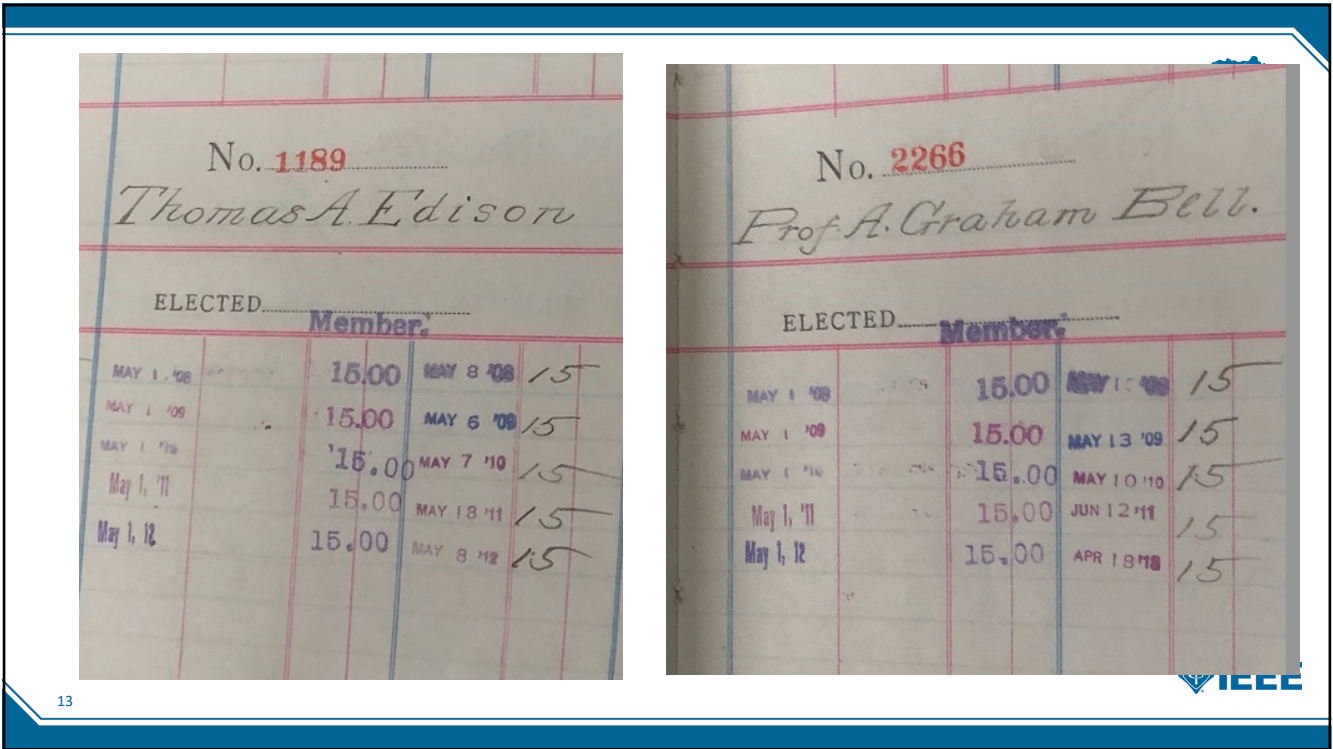 No. 1189
Thomas A. Edison
ELECTED
Member.
MAY 1 '08 15.00 MAY 8 '08 15
MAY 1 '09 15.00 MAY 6 '09 15
MAY 1 '10 15.00 MAY 7 '10 15
May 1, '11 15.00 MAY 18 '11 15
May 1, 12 15.00 MAY 8 '12 15
No. 2266
Prof. A. Graham Bell.
ELECTED
Member.
MAY 1 '08 15.00 MAY '08 15
MAY 1 '09 15.00 MAY 13 '09 15
MAY 1 '10 15.00 MAY 10 '10 15
May 1, '11 15.00 JUN 12 '11 15
May 1, 12 15.00 APR 18 15
13
IEEE